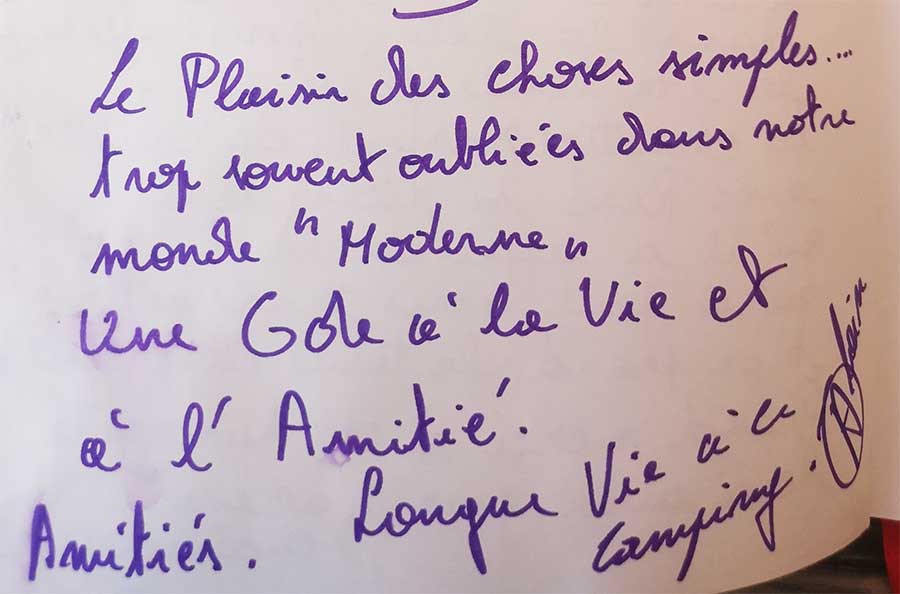 Le Plaisir des choses simples...
trop souvent oubliées dans notre
monde "Moderne"
Une Ode à la Vie et
à l'Amitié.
Longue Vie à ce
Camping.
Amitiés.
Alain